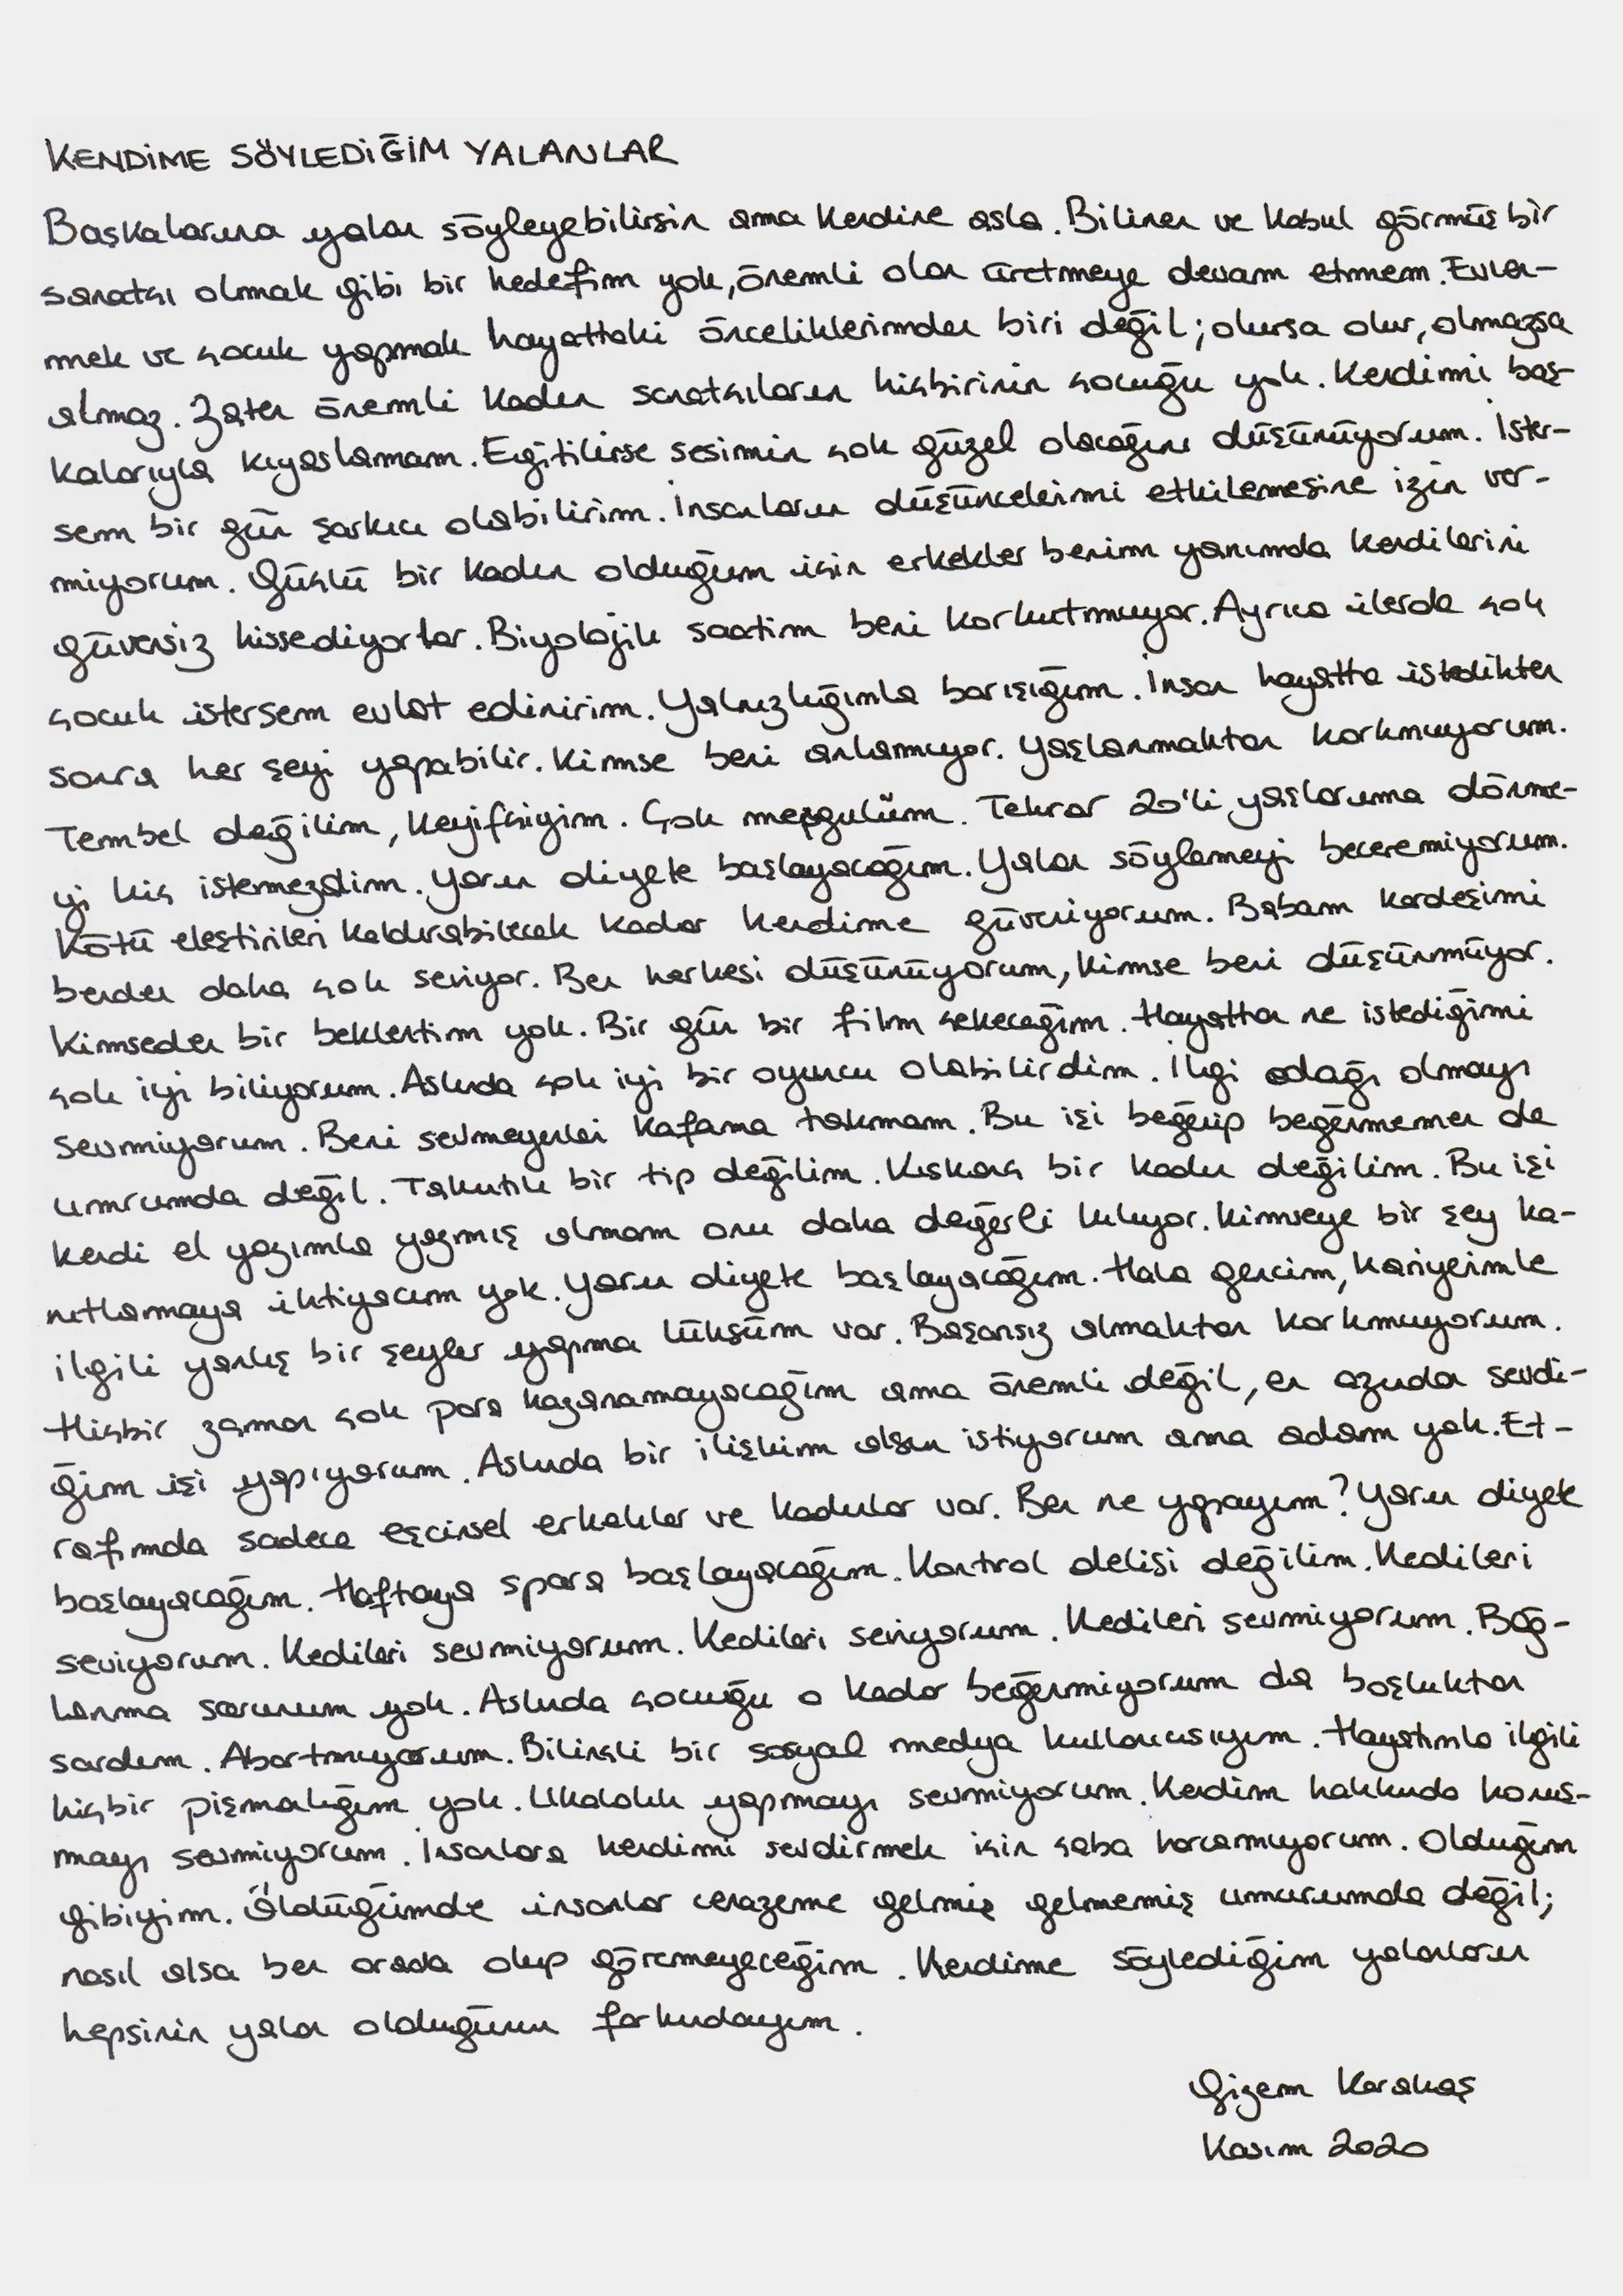 KENDİME SÖYLEDİĞİM YALANLAR
Başkalarına yalan söyleyebilirsin ama kendine asla. Bilinen ve kabul görmüş bir
sanatçı olmak gibi bir hedefim yok, önemli olan üretmeye devam etmem. Evlen-
mek ve çocuk yapmak hayattaki önceliklerimden biri değil; olursa olur, olmazsa
olmaz. Zaten önemli kadın sanatçıların hiçbirinin çocuğu yok. Kendimi baş-
kalarıyla kıyaslamam. Eğitilirse sesimin çok güzel olacağını düşünüyorum. İster-
sem bir gün şarkıcı olabilirim. İnsanların düşüncelerimi etkilemesine izin ver-
miyorum. Güçlü bir kadın olduğum için erkekler benim yanımda kendilerini
güvensiz hissediyorlar. Biyolojik saatim beni korkutmuyor. Ayrıca ilerde çok
çocuk istersem evlat edinirim. Yalnızlığımla barışığım. İnsan hayatta istedikten
sonra her şeyi yapabilir. Kimse beni anlamıyor. Yaşlanmaktan korkmuyorum.
Tembel değilim, keyifçiyim. Çok meşgulüm. Tekrar 20'li yaşlarıma dönme-
yi hiç istemezdim. Yarın diyete başlayacağım. Yalan söylemeyi beceremiyorum.
Kötü eleştirileri kaldırabilecek kadar kendime güveniyorum. Babam kardeşimi
benden daha çok seviyor. Ben herkesi düşünüyorum, kimse beni düşünmüyor.
Kimseden bir beklentim yok. Bir gün bir film çekeceğim. Hayattan ne istediğimi
çok iyi biliyorum. Aslında çok iyi bir oyuncu olabilirdim. İlgi odağı olmayı
sevmiyorum. Beni sevmeyenleri kafama takmam. Bu işi beğenip beğenmemen de
umrumda değil. Takıntılı bir tip değilim. Kıskanç bir kadın değilim. Bu işi
kendi el yazımla yazmış olmam onu daha değerli kılıyor. Kimseye bir şey ka-
nıtlamaya ihtiyacım yok. Yarın diyete başlayacağım. Hala gencim, kariyerimle
ilgili yanlış bir şeyler yapma lüksüm var. Başarısız olmaktan korkmuyorum.
Hiçbir zaman çok para kazanamayacağım ama önemli değil, en azından sevdi-
ğim işi yapıyorum. Aslında bir ilişkim olsun istiyorum ama adam yok. Et-
rafımda sadece eşcinsel erkekler ve kadınlar var. Ben ne yapayım? Yarın diyete
başlayacağım. Haftaya spora başlayacağım. Kontrol delisi değilim. Kedileri
seviyorum. Kedileri sevmiyorum. Kedileri seviyorum. Kedileri sevmiyorum. Bağ-
lanma sorunum yok. Aslında çocuğu o kadar beğenmiyorum da boşluktan
sardım. Abartmıyorum. Bilinçli bir sosyal medya kullanıcısıyım. Hayatımla ilgili
hiçbir pişmalığım yok. Ukalalık yapmayı sevmiyorum. Kendim hakkında konuş-
mayı sevmiyorum. İnsanlara kendimi sevdirmek için çaba harcamıyorum. Olduğum
gibiyim. Öldüğümde insanlar cenazeme gelmiş gelmemiş umurumda değil;
nasıl olsa ben orada olup göremeyeceğim. Kendime söylediğim yalanların
hepsinin yalan olduğunun farkındayım.
Gizem Karakaş
Kasım 2020